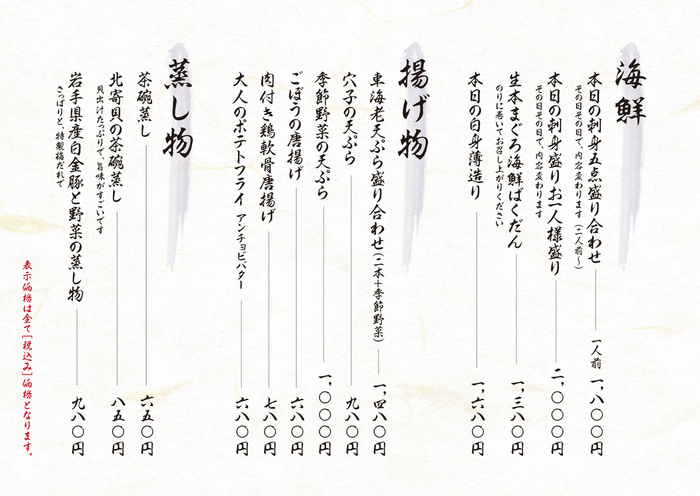 海鮮
本日の刺身五点盛り合わせ 一人前 一、八〇〇円
その日その日で、内容変わります(二人前〜)
本日の刺身盛りお一人様盛り 二、〇〇〇円
その日その日で、内容変わります
生本まぐろ海鮮ばくだん 一、三八〇円
のりに巻いてお召し上がりください
本日の白身薄造り 一、六八〇円
揚げ物
車海老天ぷら盛り合わせ(二本+季節野菜) 一、四八〇円
穴子の天ぷら 九八〇円
季節野菜の天ぷら 一、〇〇〇円
ごぼうの唐揚げ 六八〇円
肉付き鶏軟骨唐揚げ 七八〇円
大人のポテトフライ アンチョビバター 六八〇円
蒸し物
茶碗蒸し 六五〇円
北寄貝の茶碗蒸し 八五〇円
貝出汁たっぷりで、旨味がすごいです
岩手県産白金豚と野菜の蒸し物 九八〇円
さっぱりと、特製梅だれで
表示価格は全て[税込み]価格となります。